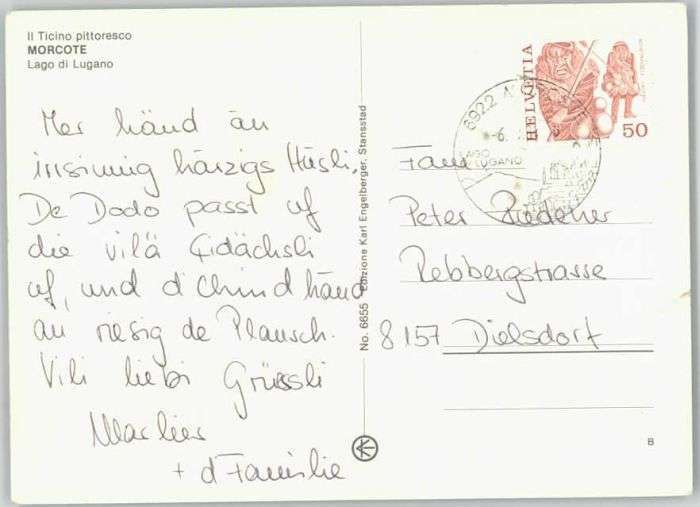 Il Ticino pittoresco
MORCOTE
Lago di Lugano
Mer händ än
irrsinnig härzigs Hüsli.
De Dodo passt uf
die vilä Eidächsli
uf, und d'Chind händ
au riesig de Plausch.
Vili liebi Grüessli
+ d'Familie
No. 6655 Edizione Karl Engelberger, Stansstad
HELVETIA
50
6922
LAGO
LUGANO
Fam.
Peter Riedener
Rebbergstrasse
8157 Dielsdorf
B